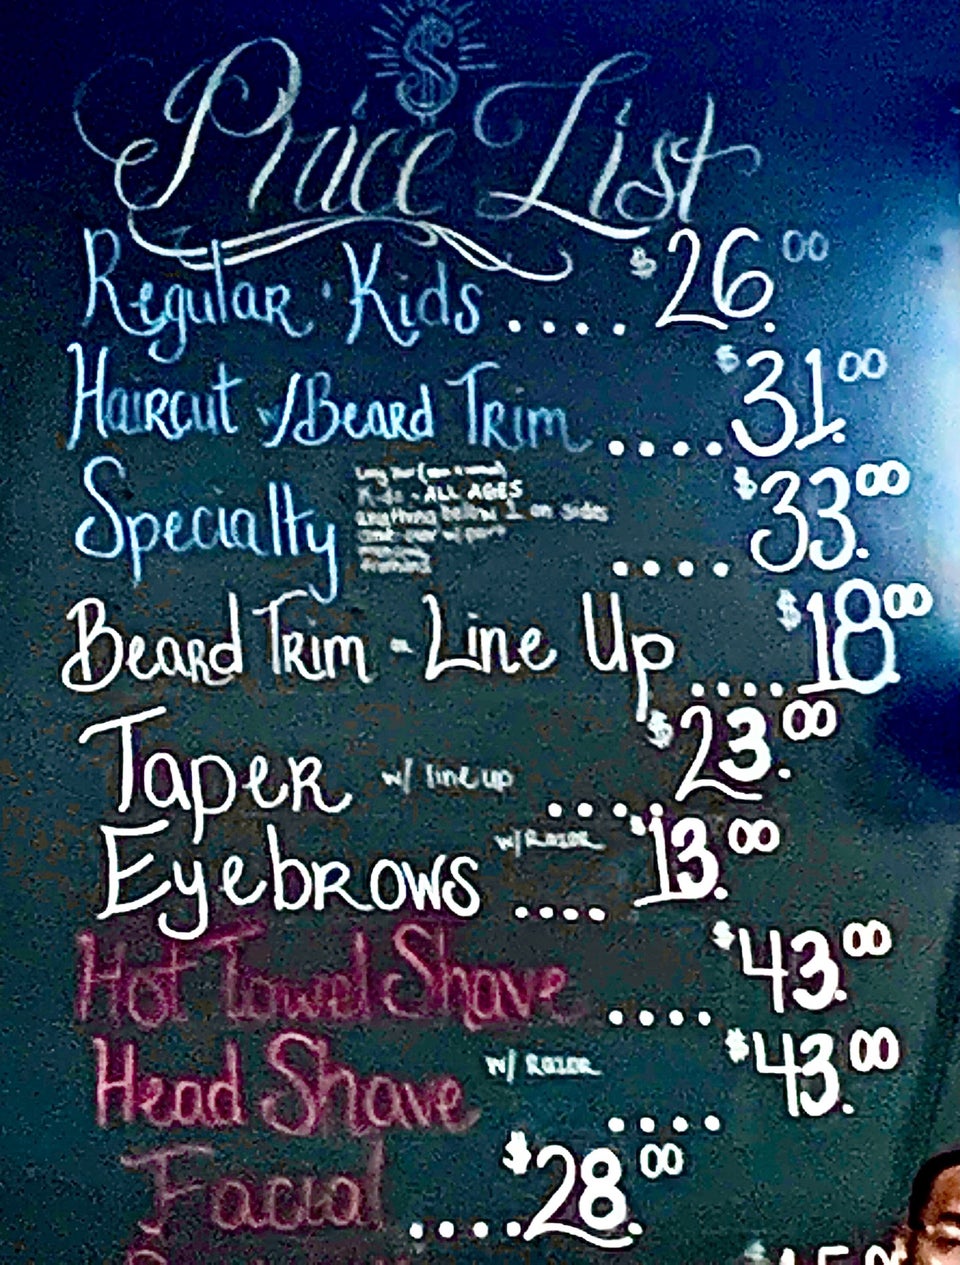 $
Price List
Regular · Kids .... $26.00
Haircut w/Beard Trim .... $31.00
Specialty .... $33.00
Kids - ALL AGES
anything below 1 on sides
Beard Trim - Line Up .... $18.00
Taper w/ line up .... $23.00
Eyebrows w/ Razor .... $13.00
Hot Towel Shave .... $43.00
Head Shave w/ Razor .... $43.00
Facial .... $28.00